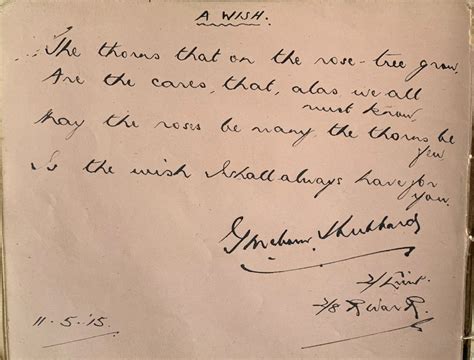 A WISH.
The thorns that on the rose-tree grow,
Are the cares, that, alas we all
must know,
May the roses be many the thorns be
few
Is the wish I shall always have for
you.
Graham Hubbard
2/Lieut.
2/8 R War R.
11.5.15.